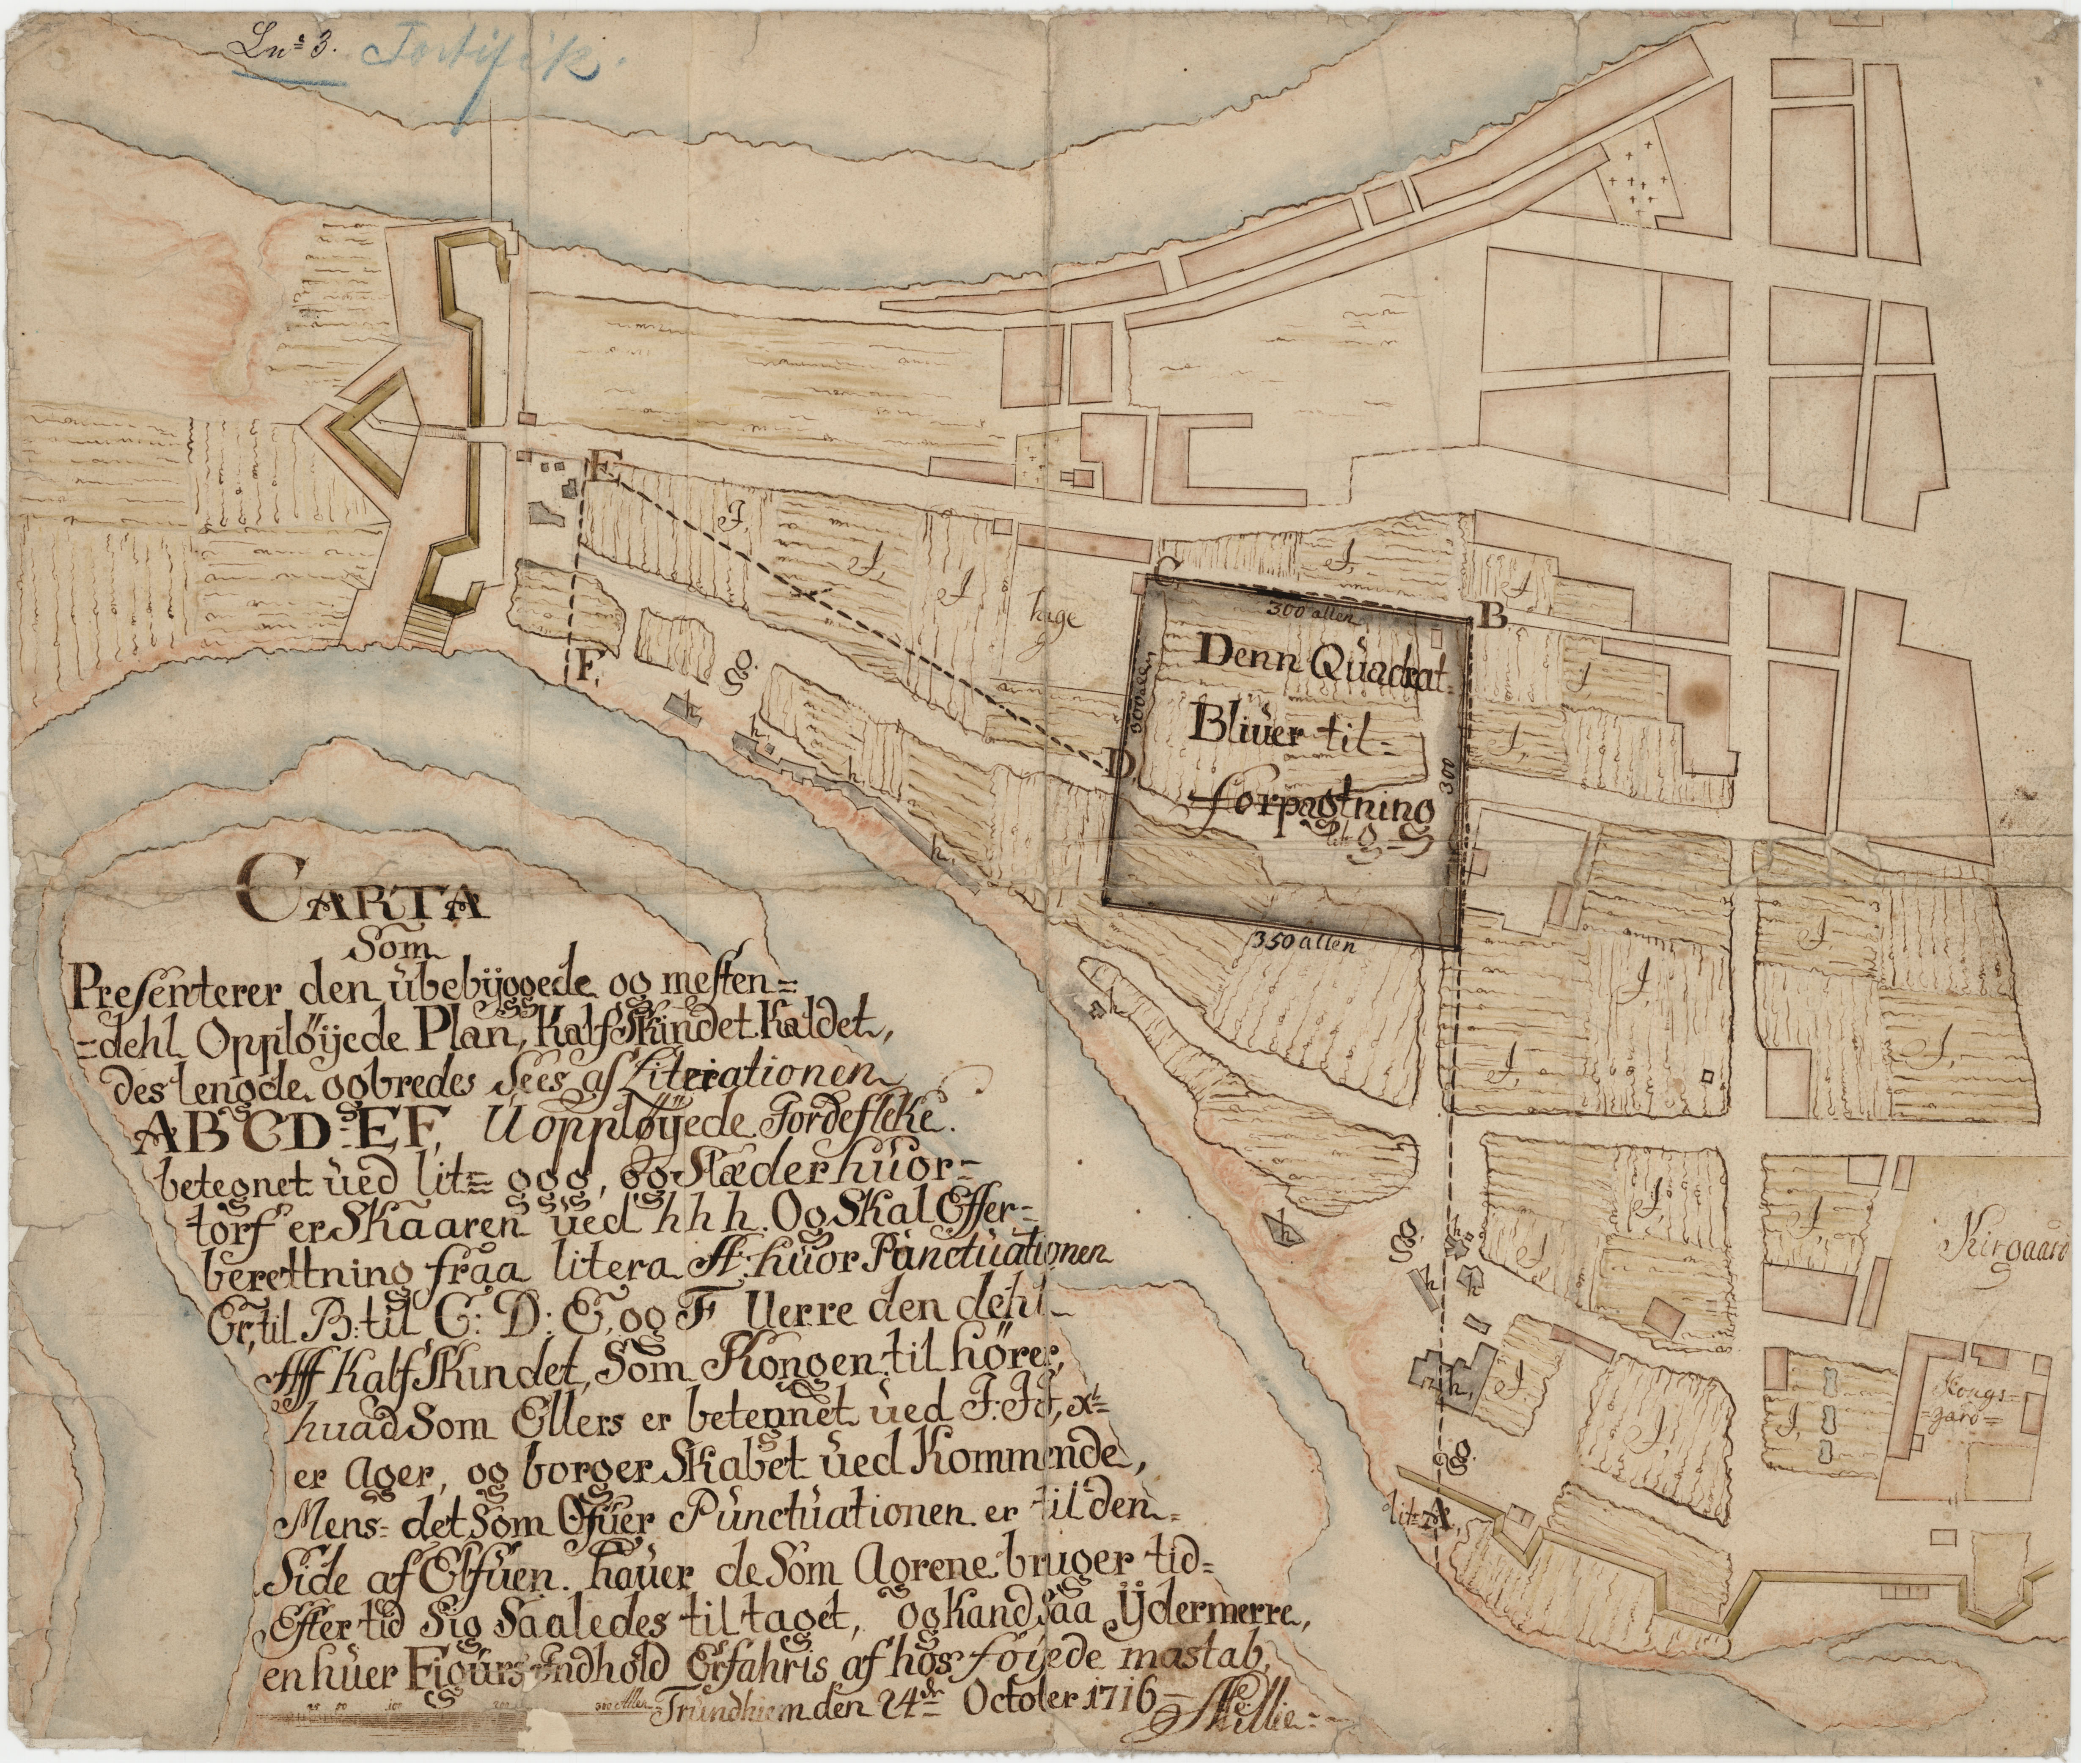 Ln: 3. Fortifik.
E
J
J
J
J
J
C
300 allen
B
hage
Denn Quadrat
Bliver til=
forpagtning
lit g=g
300 allen
300
350 allen
D.
F.
g.
g.
h
h
h
h
h
J
J
J
J
J
J
CARTA
Som
Presenterer den ubebÿggede og mesten=
=dehl Opplöÿede Plan, KalfSkindet Kaldet,
des lengde og bredes Sees af Literationen
ABCD=EF, Uopplöÿede Jordeflcke.
betegnet ved lit= ggg, og Stæder huor=
torf er Skaaren ved h h h. Og Skal Effter=
berettning fraa litera A: huor Punctuationen
Er, til B: til C: D: E, og F Verre den dehl
Aff KalfSkindet, Som Kongen til hörer,
huad Som Ellers er betegnet ved J: J J,
er Ager, og borgerSkabet ved Kommende,
Mens= det Som Ofuer Punctuationen er til den
Side af Elfuen. hauer de Som Agrene bruger tid=
Effter tid Sig Saaledes til taget, og kand Saa Ÿdermerre,
en huer Figurs Indhold Erfahris af hos föiede mastab.
300 allen Trundhiem den 24de October 1716
J
J
J
Kirgaard
g.
g.
h
h
h
h
h
h,
J
J
J
Kongs=
gard=
g.
g.
lit: A,